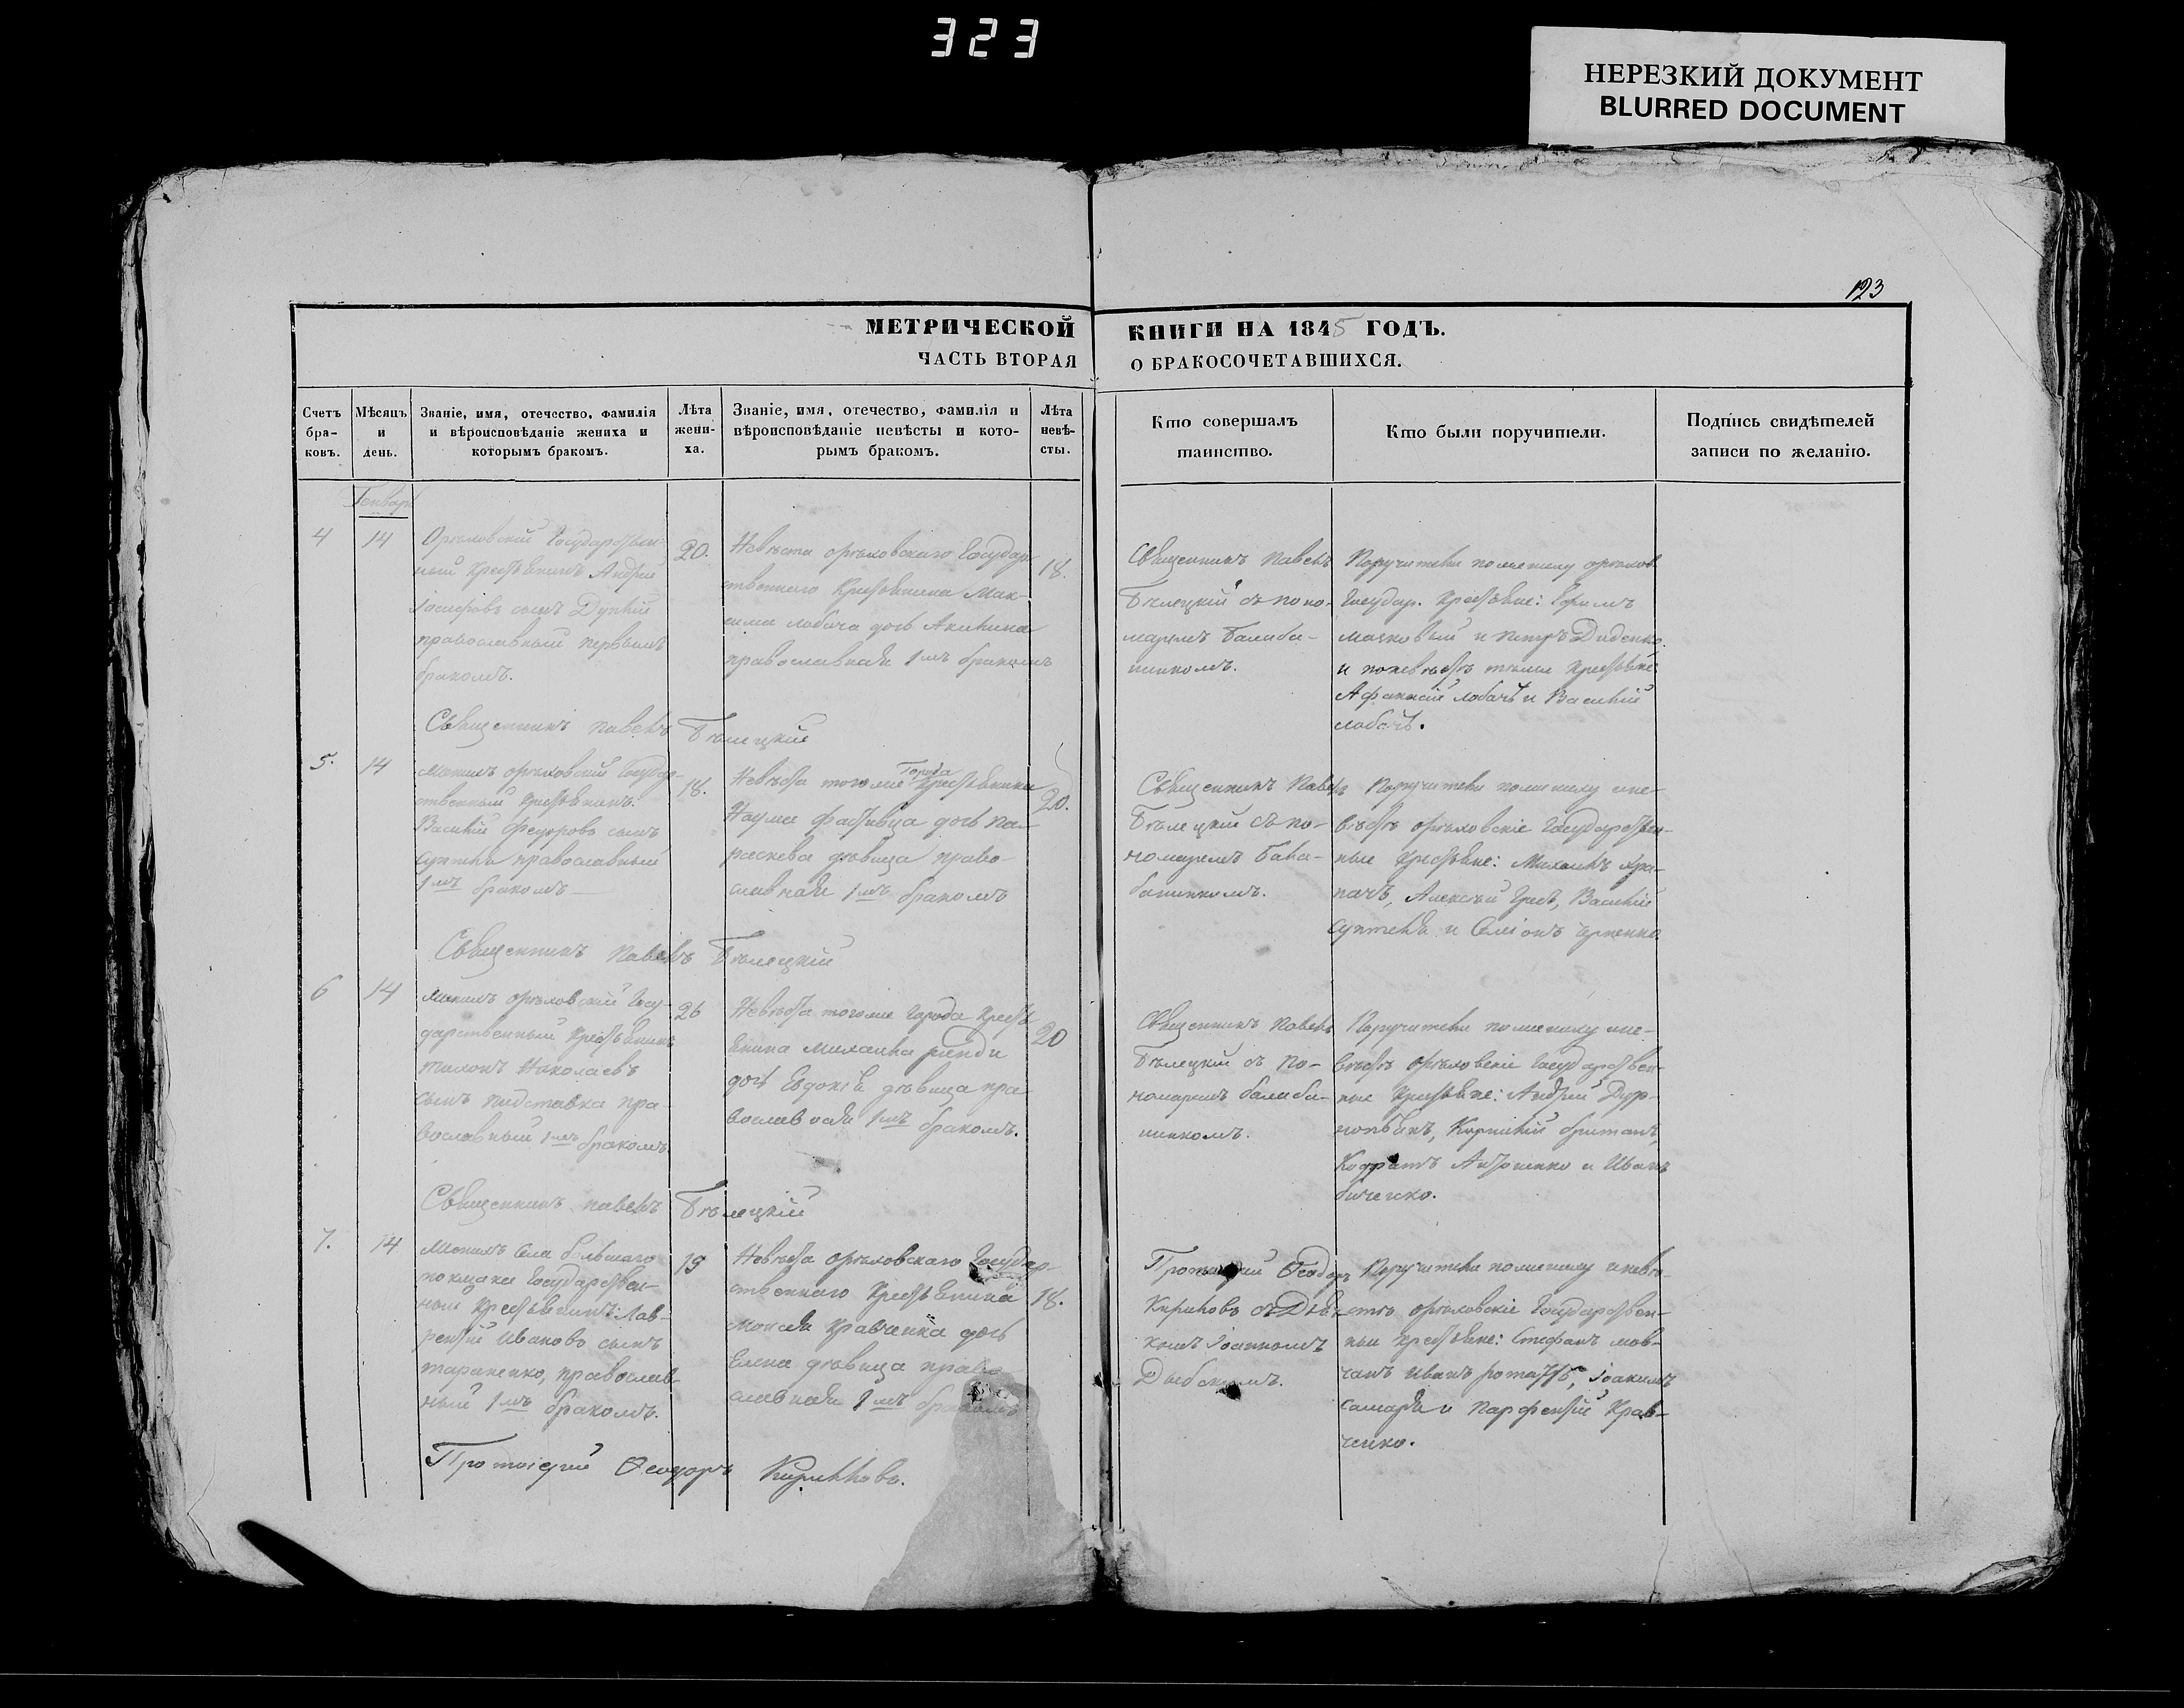 323
НЕРЕЗКИЙ ДОКУМЕНТ
BLURRED DOCUMENT
123
МЕТРИЧЕСКОЙ КНИГИ НА 1845 ГОДЪ.
ЧАСТЬ ВТОРАЯ О БРАКОСОЧЕТАВШИХСЯ.
Счетъ браковъ.
Мѣсяцъ и день.
Званіе, имя, отечество, фамилія
и вѣроисповѣданіе жениха и
которымъ бракомъ.
Лѣта жениха.
Званіе, имя, отечество, фамилія и
вѣроисповѣданіе невѣсты и кото-
рымъ бракомъ.
Лѣта невѣ-
сты.
Кто совершалъ
таинство.
Кто были поручители.
Подпись свидѣтелей
записи по желанію.
Генварь
4
14
Орѣховскій Государствен-
ный крестьянинъ Андрей
Іосифовъ сынъ
православный первымъ
бракомъ.
20.
Невѣста орѣховскаго Государ-
ственнаго крестьянина Мак-
сима Лобача дочь Акилина
православная 1мъ бракомъ
18.
Священникъ Павелъ
Бѣлецкій съ поно-
маремъ
Поручители по жениху орѣхов.
Государ. крестьяне: Ефимъ
и Петръ Диденко
и по невѣстѣ тѣже крестьяне
Афанасій Лобачъ и Василій
Лобачъ.
Священникъ Павелъ Бѣлецкій
5.
14
Женихъ орѣховскій Государ-
ственный крестьянинъ
Василій Федоровъ сынъ
православный
1мъ бракомъ
18.
Невѣста тогоже Города крестьянина
Наума дочь Па-
раскева дѣвица право-
славная 1мъ бракомъ
20.
Священникъ Павелъ
Бѣлецкій съ по-
номаремъ
Поручители по жениху и не-
вѣстѣ орѣховскіе Государствен-
ные крестьяне: Михаилъ
Алексѣй Василій
и Семіонъ
Священникъ Павелъ Бѣлецкій
6
14
Женихъ орѣховскій Госу-
дарственный крестьянинъ
Николаевъ
сынъ Пидставка пра-
вославный 1мъ бракомъ
26
Невѣста тогоже Города кресть-
янина Михаила
дочь Евдокія дѣвица пра-
вославная 1мъ бракомъ.
20
Священникъ Павелъ
Бѣлецкій съ по-
номаремъ
Поручители по жениху и не-
вѣстѣ орѣховскіе Государствен-
ные крестьяне: Андрей
Кодратъ и Иванъ
Священникъ Павелъ Бѣлецкій
7.
14
Женихъ села большаго
токмака Государствен-
ный крестьянинъ Лав-
рентій Ивановъ сынъ
Тараненко, православ-
ный 1мъ бракомъ.
19
Невѣста орѣховскаго Государ-
ственнаго крестьянина
Моисея Кравченка дочь
Елена дѣвица право-
славная 1мъ бракомъ
18.
Протоіерей Феодоръ
Кириловъ съ Дьяч-
комъ Іоанномъ
Поручители по жениху и невѣ-
стѣ орѣховскіе Государствен-
ные крестьяне: Стефанъ Мов-
чанъ Иванъ Іоакимъ
и Парфентій Крав-
ченко.
Протоіерей Феодоръ Кириловъ.